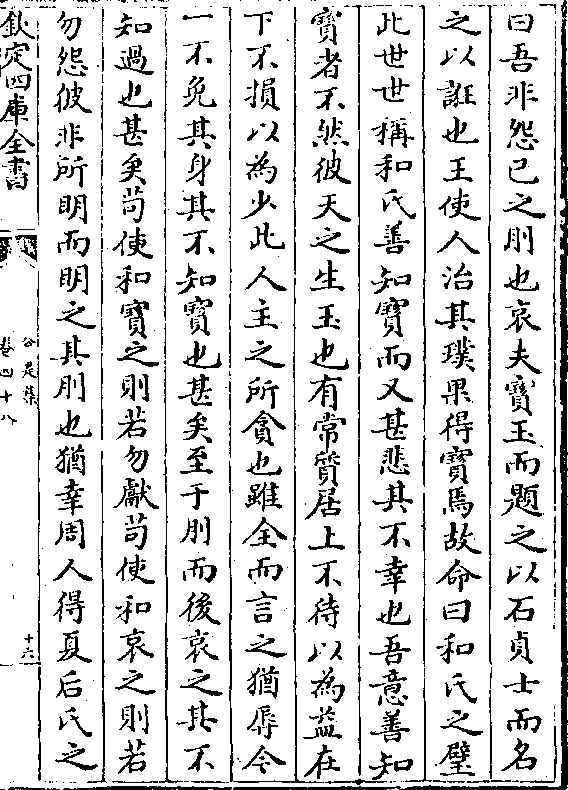 曰吾非怨已之刖也哀夫寶玉而題之以石貞士而名
之以誑也王使人治其璞果得寶焉故命曰和氏之璧
此世世稱和氏善知寶而又甚悲其不幸也吾意善知
寶者不然彼天之生玉也有常質居上不待以為益在
下不損以為少此人主之所貪也雖全而言之猶辱今
一不免其身其不知寶也甚矣至于刖而後哀之其不
知過也甚矣茍使和寶之則若勿獻茍使和哀之則若
勿怨彼非所明而明之其刖也猶幸周人得夏后氏之
欽定四庫全書
公是集
卷四十八
十六